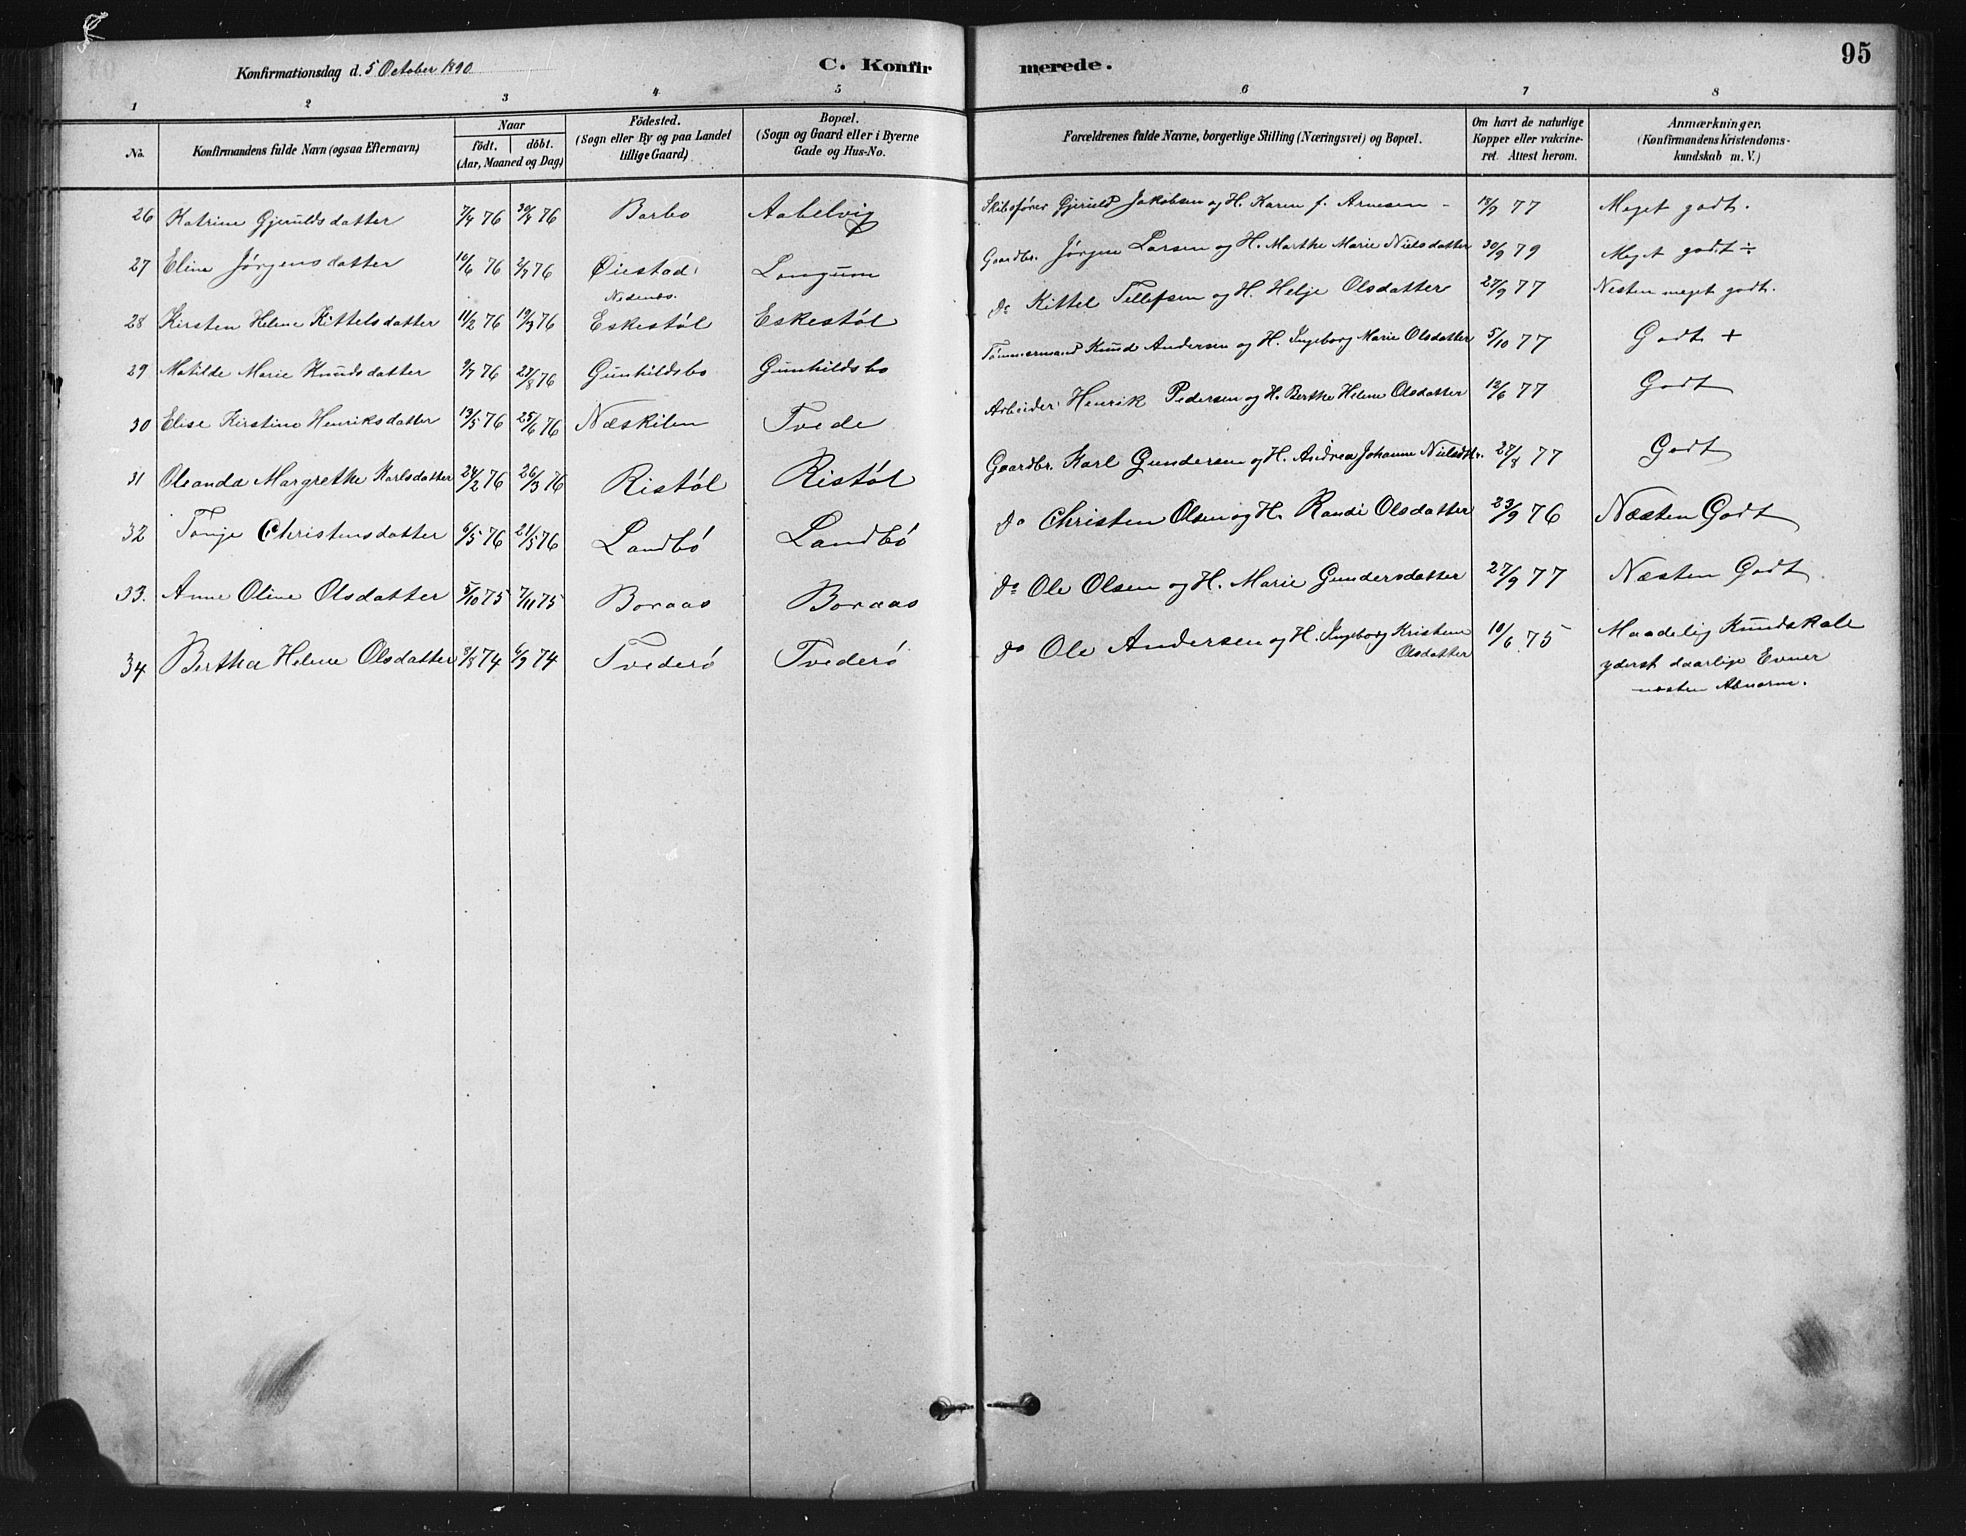 Konfirmationsdag d. 5 October 1890
C. Konfir merede.
95
1 2 3 4 5 6 7 8
No.
Konfirmandens fulde Navn (ogsaa Efternavn)
Naar
födt. döbt.
(Aar, Maaned og Dag)
Födested.
(Sogn eller By og paa Landet
tillige Gaard)
Bopæl.
(Sogn og Gaard eller i Byerne
Gade og Hus-No.
Forældrenes fulde Navne, borgerlige Stilling (Næringsvei) og Bopæl.
Om havt de naturlige
Kopper eller vakcine-
ret. Attest herom.
Anmærkninger.
(Konfirmandens Kristendoms-
kundskab m. V.)
26 Katrine Gjeruldsdatter 7/4 76 30/4 76 Barbo Aabelvig Skibsfører Gjeruld Jakobsen og H. Karen f. Arnesen - 13/9 77 Meget godt.
27 Eline Jørgensdatter 10/6 76 2/7 76 Öiestad Longum Gaardbr. Jørgen Larsen og H. Marthe Marie Nielsdatter 30/9 79 Meget godt ÷
Nedenes.
28 Kirsten Helene Kittelsdatter 11/2 76 19/3 76 Eskestøl Eskestøl do Kittel Tellefsen og H. Helje Olsdatter 27/9 77 Nesten meget godt.
29 Matilde Marie Knudsdatter 9/7 76 27/8 76 Gunhildsbo Gunhildsbo Tömmermand Knud Andersen og H. Ingeborg Marie Olsdatter 5/10 77 Godt +
30 Elise Kirstine Henriksdatter 13/5 76 25/6 76 Næskilen Tvede Arbeider Henrik Pedersen og H. Berthe Helene Olsdatter 12/6 77 Godt
31 Oleanda Margrethe Karlsdatter 24/2 76 26/3 76 Ristøl Ristøl Gaardbr. Karl Gundersen og H. Andrea Johanne Nielsdtr. 27/8 77 Godt
32 Tönje Christensdatter 6/5 76 21/5 76 Landbö Landbö do Christen Olsen og H. Randi Olsdatter 23/9 76 Næsten Godt
33. Anne Oline Olsdatter 5/10 75 7/11 75 Boraas Boraas do Ole Olsen og H. Marie Gundersdatter 27/9 77 Næsten Godt
34 Bertha Helene Olsdatter 3/8 74 6/9 74 Tvederö Tvederö do Ole Andersen og H. Ingeborg Kristine 10/6 75 Maadelig Kundskab
Olsdatter yderst daarlige Evner
næsten Abnorm.